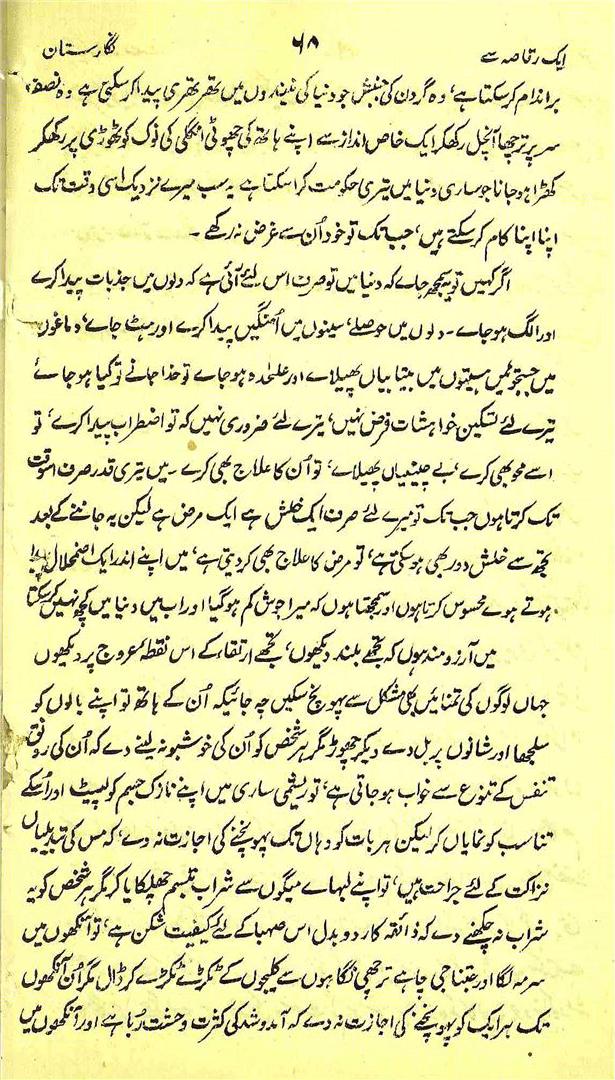 ایک رقاصہ سے ۶۸ نگارستان
بر اندام کر سکتا ہے، وہ گردن کی جنبش جو دنیا کی نیندوں میں تھرتھری پیدا کر سکتی ہے وہ نصف
سر پر ترچھا آنچل رکھکر ایک خاص انداز سے اپنے ہاتھ کی چھوٹی انگلی کی نوک کو ٹھوڑی پر رکھکر
کھڑا ہوجانا جو ساری دنیا میں تیری حکومت کرا سکتا ہے یہ سب میرے نزدیک اسی وقت تک
اپنا اپنا کام کر سکتے ہیں، جب تک تو خود اُن سے غرض نہ رکھے ۔
اگر کہیں تو یہ سمجھ جاے کہ دنیا میں تو صرف اس لیئے آئی ہے کہ دلوں میں جذبات پیدا کرے
اور الگ ہوجاے ۔ دلوں میں حوصلے، سینوں میں اُمنگیں پیدا کرے اور ہٹ جاے، دماغوں
میں جستجوئیں سیتوں میں بیتابیاں پھیلاے اور علحٰدہ ہوجاے تو خدا جانے تو کیا ہوجاے
تیرے لئے تسکین خواہشات فرض نہیں، تیرے لئے ضروری نہیں کہ تو اضطراب پیدا کرے، تو
اسے محو بھی کرے، بے چینیاں پھیلاے، تو اُن کا علاج بھی کرے ۔ میں تیری قدر صرف اسوقت
تک کرتا ہوں جب تک تو میرے لئے صرف ایک خلش ہے ایک مرض ہے لیکن یہ جاننے کے بعد
تجھ سے خلش دور بھی ہوسکتی ہے، تو مرض کا علاج بھی کردیتی ہے، میں اپنے اندر ایک اضمحلال پیدا
ہوتے ہوے محسوس کرتا ہوں اور سمجھتا ہوں کہ میرا جوش کم ہوگیا اور اب میں دنیا میں کچھ نہیں کرسکتا
میں آرزومند ہوں کہ تجھے بلند دیکھوں، تجھے ارتقاء کے اس نقطۂ عروج پر دیکھوں
جہاں لوگوں کی تمنائیں بھی مشکل سے پہونچ سکیں چہ جائیکہ اُن کے ہاتھ تو اپنے بالوں کو
سلجھا اور شانوں پر بل دے دیکر چھوڑ مگر ہر شخص کو اُن کی خوشبو نہ لینے دے کہ اُن کی رونق
تنفس کے تنوع سے خواب ہوجاتی ہے، تو ریشمی ساری میں اپنے نازک جسم کو لپیٹ اور اُسکے
تناسب کو نمایاں کر لیکن ہر بات کو وہاں تک پہونچنے کی اجازت نہ دے، کہ مس کی تبدیلیاں
نزاکت کے لئے جراحت ہیں، تو اپنے لبہاے میگوں سے شراب تبسم چھلکایا کر مگر ہر شخص کو یہ
شراب نہ چکھنے دے کہ ذائقہ کا رد و بدل اس صہبا کے لئے کیفیت شکن ہے، تو آنکھوں میں
سرمہ لگا اور جتنا جی چاہے ترچھی نگاہوں سے کلیجوں کے ٹکڑے ٹکڑے کر ڈال مگر اُن آنکھوں
تک ہر ایک کو پہونچنے کی اجازت نہ دے کہ آمد و شد کی کثرت وحشت رُبا ہے اور آنکھوں میں